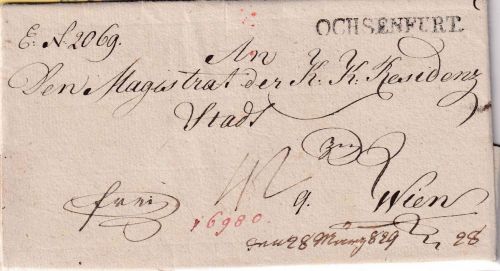 OCHSENFURT.
E. N. 2069.
An
Den Magistrat der K: K: Residenz
Stadt
zu
frei
9. Wien
16980.
28 März 829
28